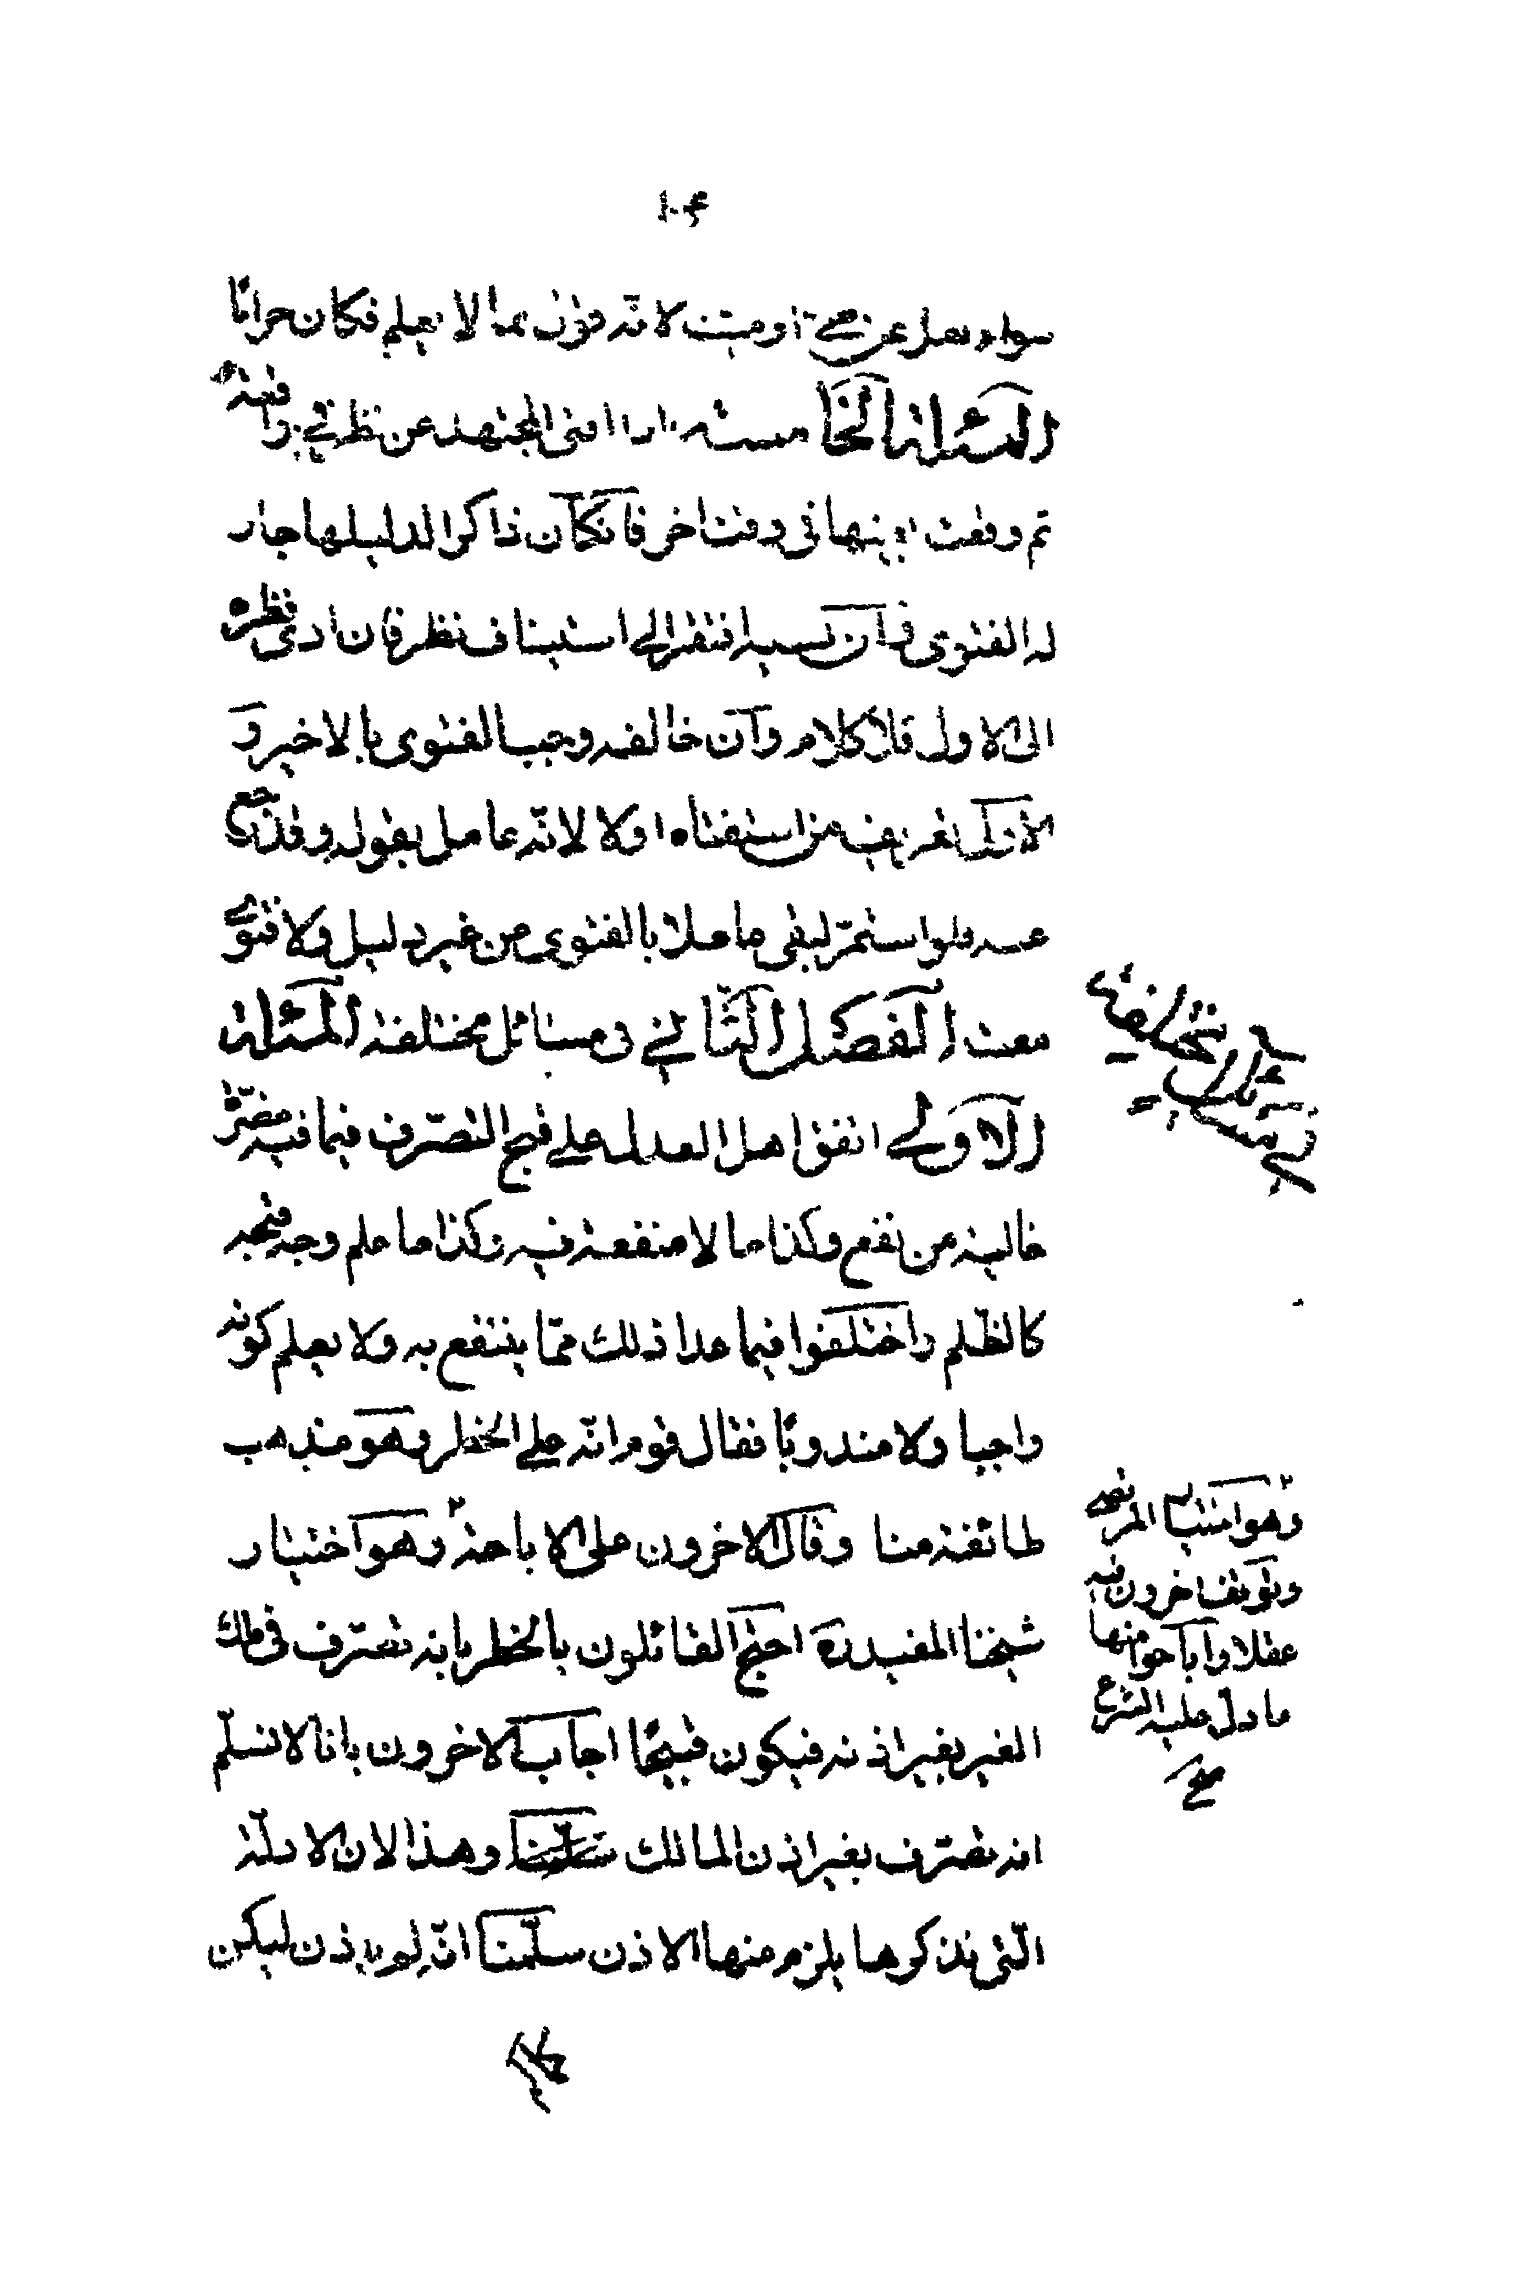 سواء نقل عن حي او ميت لانه قول بما لا يعلم فكان حراما
المسئلة الخامسة اذا افتى المجتهد عن نظر في واقعة
ثم وقعت بعينها في وقت اخر فان كان ذاكرا لدليلها جاز
له الفتوى وان نسيه افتقر الى استيناف نظر فان ادى نظره
الى الاول فلا كلام وان خالفه وجب الفتوى بالاخير و
الاولى تعريف من استفتاه اولا لانه عامل بقوله وقد رجع
عنه فلو استمر لبقى عاملا بالفتوى من غير دليل ولا فتوى
معت الفصل الثاني في مسائل مختلفة المسئلة
الاولى اتفق اهل العدل على قبح التصرف فيما فيه مضرة
خالية من نفع وكذا ما لا منفعة فيه وكذا ما علم وجه قبحه
كالظلم واختلفوا فيما عدا ذلك مما ينتفع به ولا يعلم كونه
واجبا ولا مندوبا فقال قوم انه على الحظر وهو مذهب
طائفة منا وقال الاخرون على الاباحة وهو اختيار
شيخنا المفيد ره احتج القائلون بالحظر بانه تصرف في ملك
الغير بغير اذنه فيكون قبيحا اجاب الاخرون بانا لا نسلم
انه تصرف بغير اذن المالك وهذا لان الادلة
التي نذكرها يلزم منها الاذن سلمنا انه لم ياذن ليكن
في مسائل مختلفة
وهو اختيار المرتضى
وتوقف اخرون فيه
عقلا واباحوا منها
ما دل عليه الشرع
صح